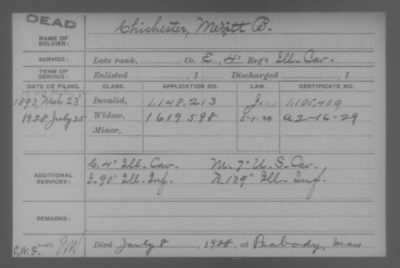 DEAD
NAME OF SOLDIER: Chichester, Merritt B.
SERVICE: Late rank, Co. E, 4" Reg't Ill. Cav.
TERM OF SERVICE: Enlisted , 1 Discharged , 1
DATE OF FILING. CLASS. APPLICATION NO. LAW. CERTIFICATE NO.
1893, Mch 23" Invalid, 1.148.213 J 1.105.409
1928 July 25 Widow, 1619598 5-1-20 A2-16-29
Minor,
ADDITIONAL SERVICES: C. 4" Ill. Cav. M. 7" U.S. Cav.
I. 90" Ill. Inf. 139" Ill. Inf.
REMARKS:
Died July 8 , 1928, at Peabody, Mass